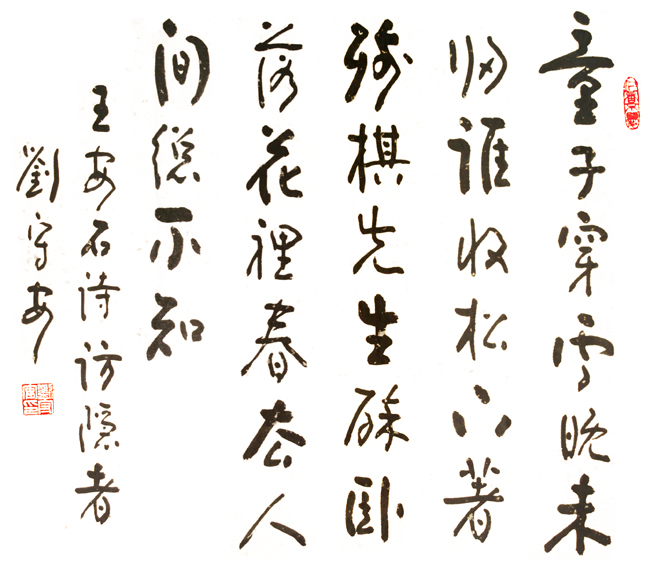 童子穿雲晚未
歸誰收松下著
殘棋先生醉臥
落花裡春去人
間總不知
王安石詩訪隱者
劉守安